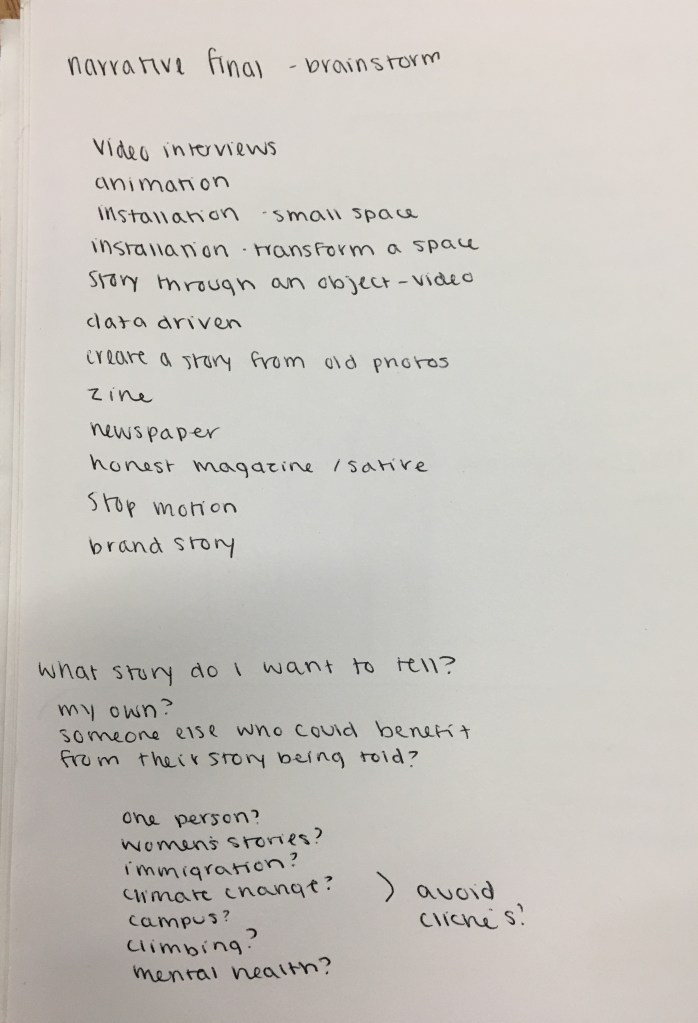 narrative final - brainstorm
video interviews
animation
installation - small space
installation - transform a space
story through an object - video
data driven
create a story from old photos
zine
newspaper
honest magazine / satire
stop motion
brand story
what story do I want to tell?
my own?
someone else who could benefit
from their story being told?
one person?
women's stories?
immigration?
climate change? ) avoid
campus? cliché's!
climbing?
mental health?